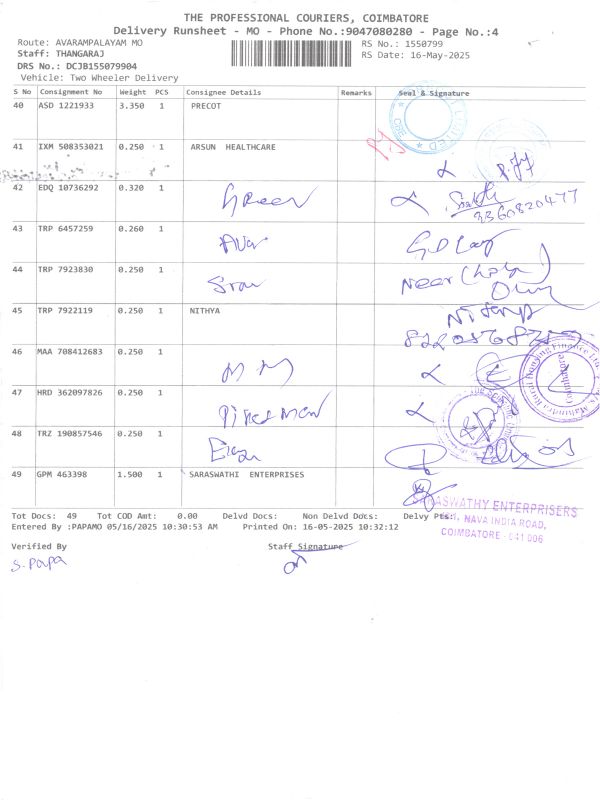 THE PROFESSIONAL COURIERS, COIMBATORE
Delivery Runsheet - MO - Phone No.:9047080280 - Page No.:4
Route: AVARAMPALAYAM MO
RS No.: 1550799
Staff: THANGARAJ
RS Date: 16-May-2025
DRS No.: DCJB155079904
Vehicle: Two Wheeler Delivery
S No Consignment No Weight PCS Consignee Details Remarks Seal & Signature
40 ASD 1221933 3.350 1 PRECOT
41 IXM 508353021 0.250 1 ARSUN HEALTHCARE
42 EDQ 10736292 0.320 1 Green
9360820477
43 TRP 6457259 0.260 1
44 TRP 7923830 0.250 1
Near
45 TRP 7922119 0.250 1 NITHYA
46 MAA 708412683 0.250 1
47 HRD 362097826 0.250 1
48 TRZ 190857546 0.250 1
49 GPM 463398 1.500 1 SARASWATHI ENTERPRISES
SARASWATHY ENTERPRISERS
NAVA INDIA ROAD,
COIMBATORE - 641 006
Tot Docs: 49 Tot COD Amt: 0.00 Delvd Docs: Non Delvd Docs: Delvy Pts:
Entered By :PAPAMO 05/16/2025 10:30:53 AM Printed On: 16-05-2025 10:32:12
Verified By Staff Signature
S. Papa